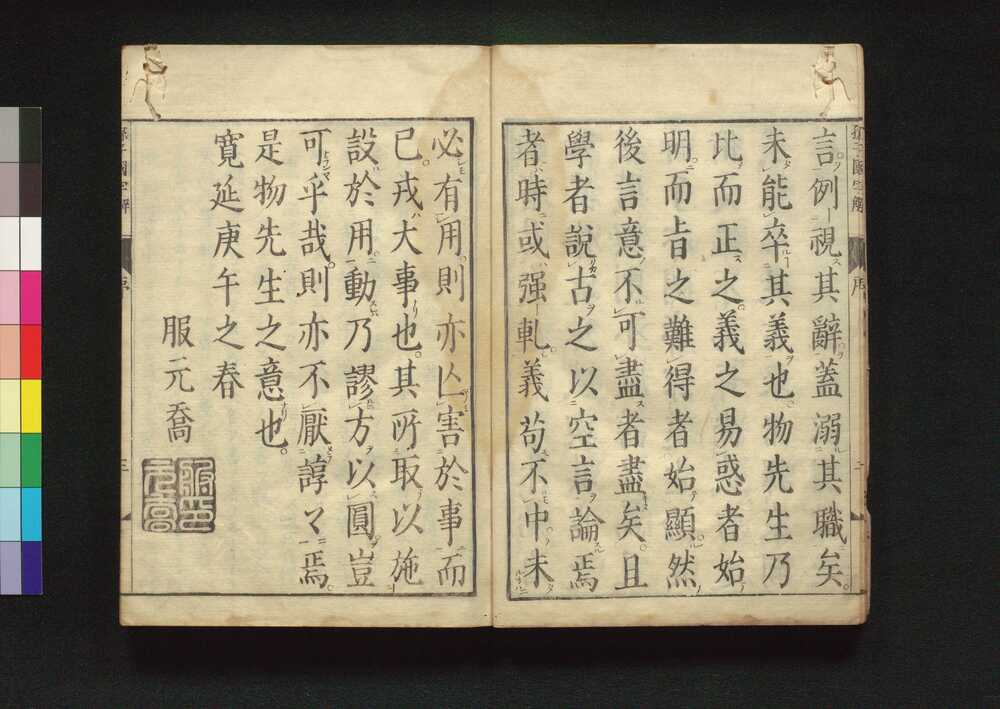 言例視其辭蓋溺其職矣。
未能卒其義也物先生乃
比而正之。義之易惑者始
明而旨之難得者始顯然
後言意不可盡者盡矣。且
學者説古之以空言論焉
者時或强軋義苟不中未
必有用則亦亾害於事而
已。戎大事也。其所取以施
設於用動乃謬方以圓豈
可乎哉。則亦不厭諄々焉。
是物先生之意也。
寛延庚午之春
服元喬
孫子國字解
序
三